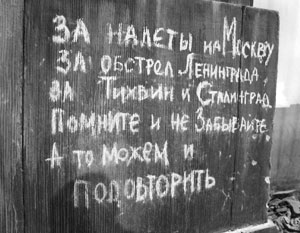 За налеты на Москву
За обстрел Ленинграда
За Тихвин и Сталинград
Помните и не Забывайте.
А то можем и
подовторить